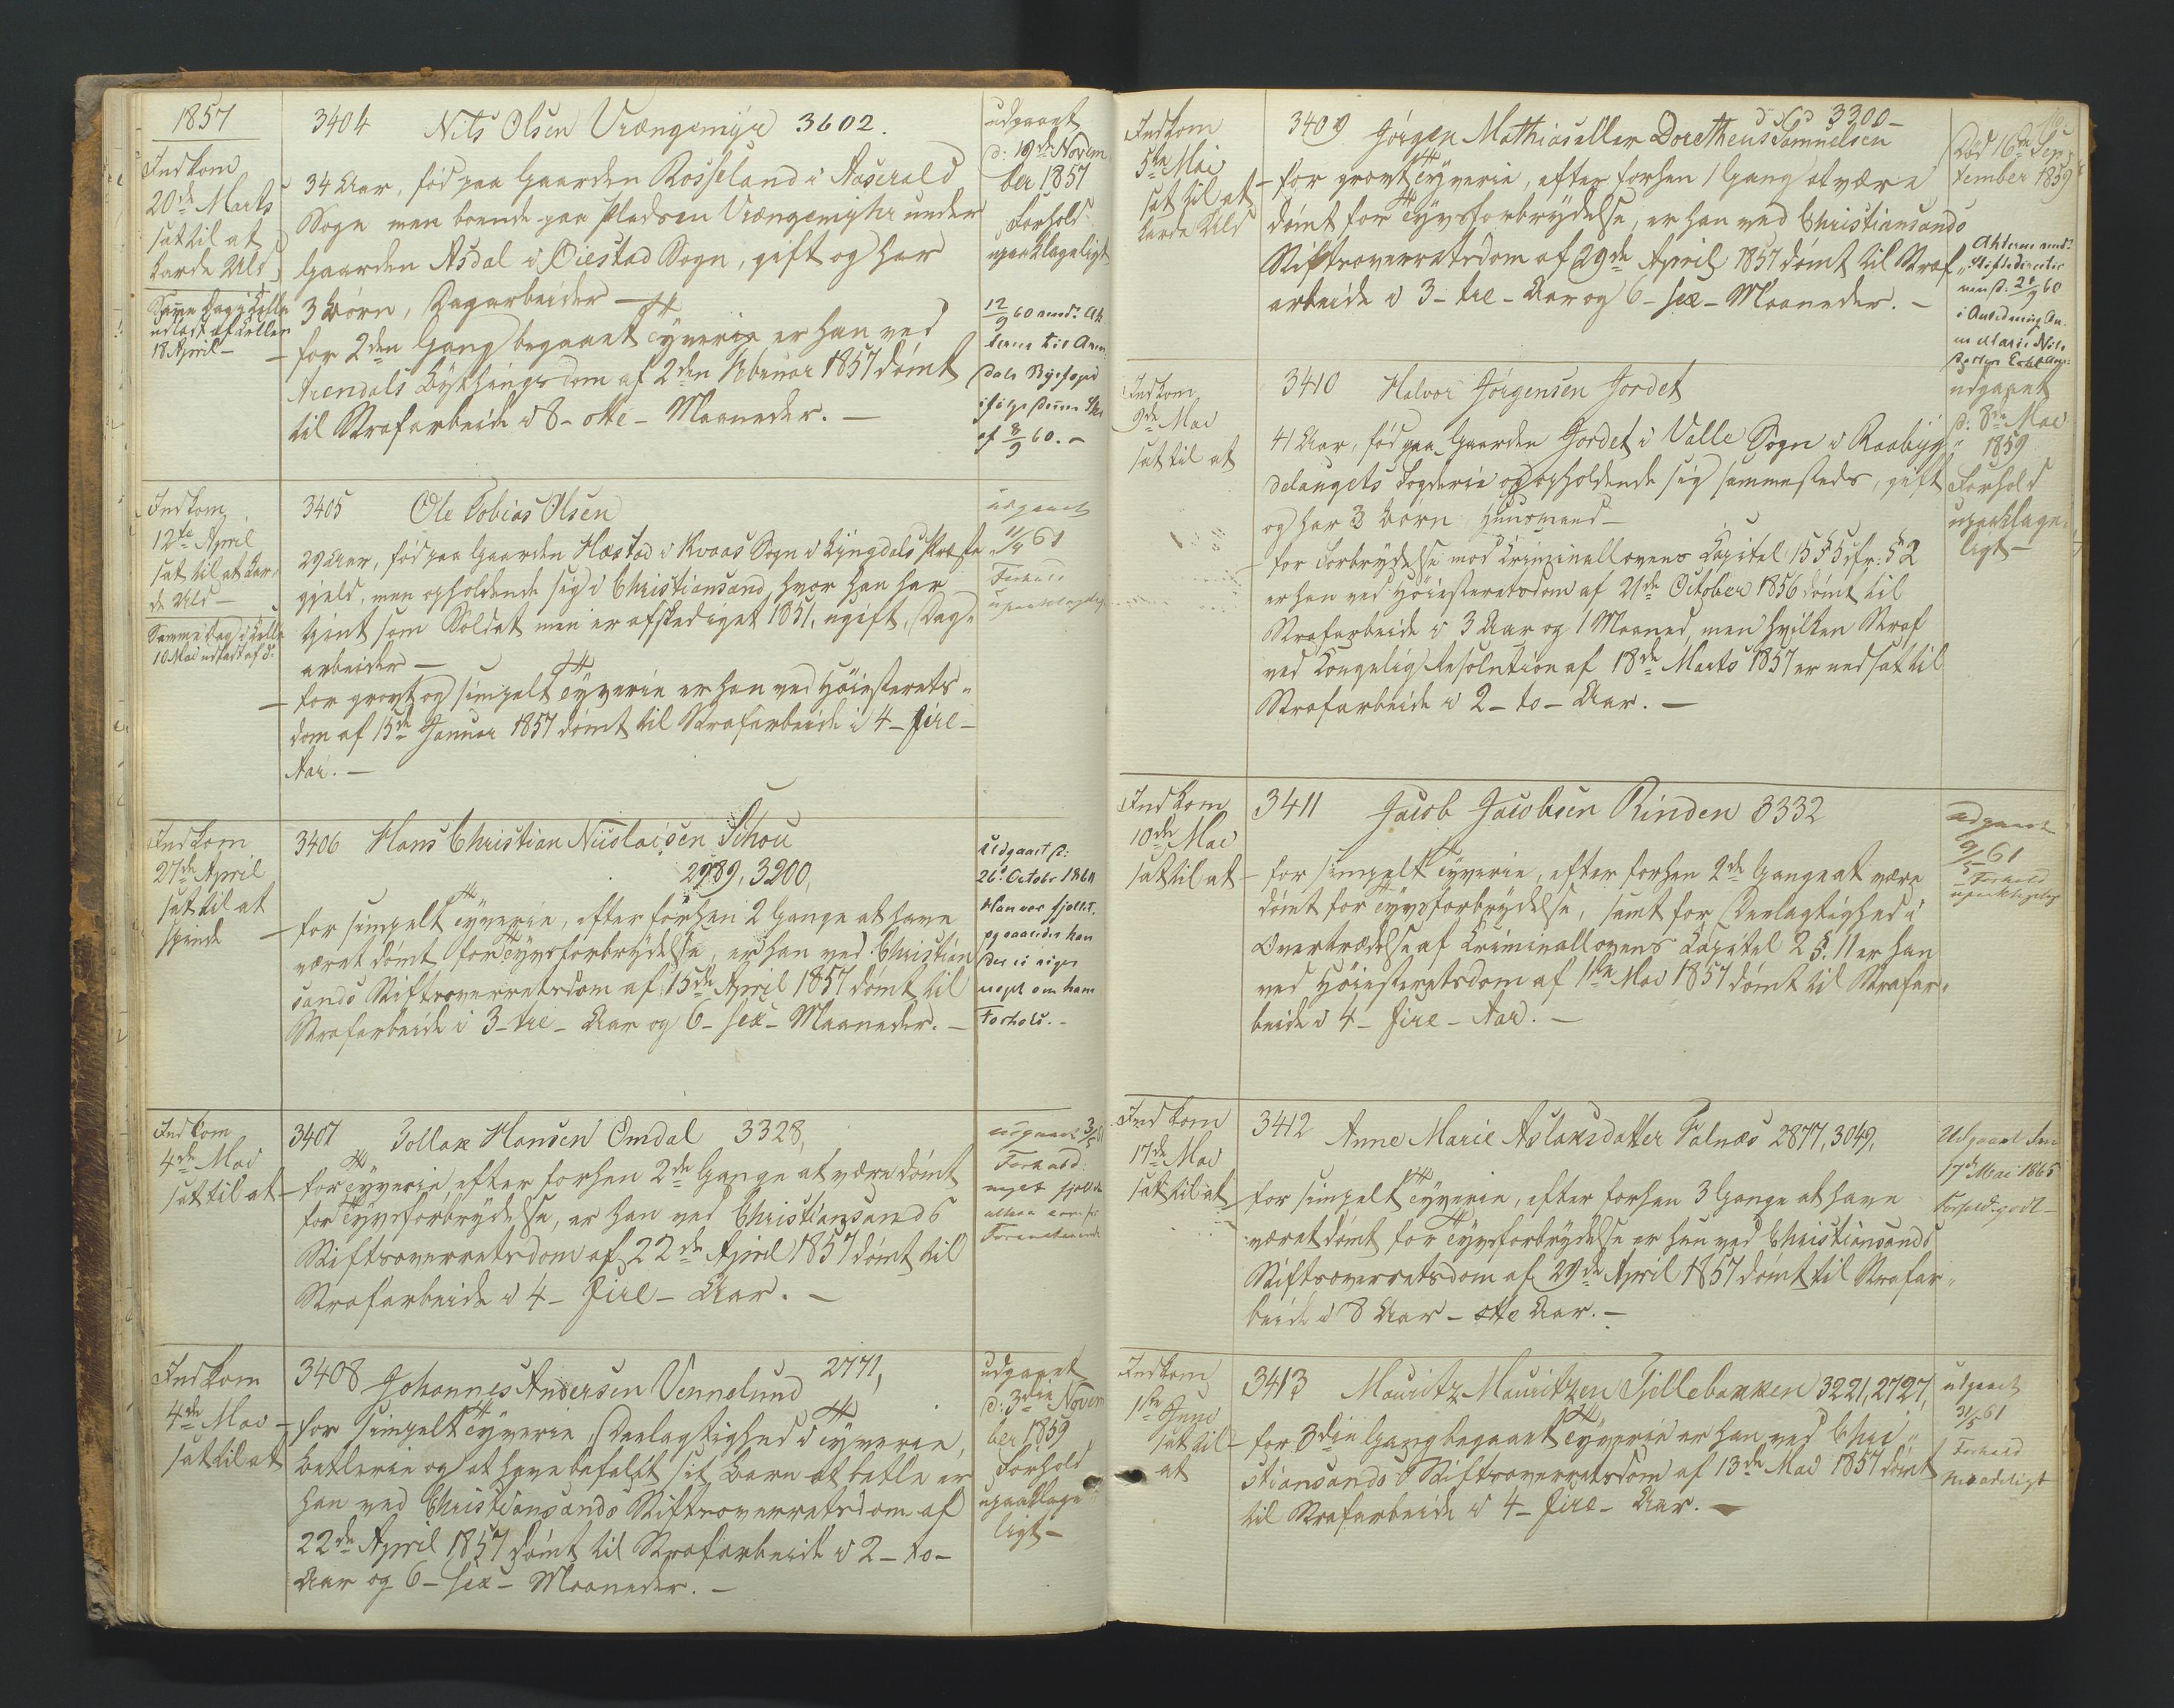 1857
Indkom
20de Marts
sat til at
karde Uld
Samme Dag i Celle
udladt af Cellen
18 April -
3404 Nils Olsen Vrængemyr 3602.
34 Aar, fød paa Gaarden Rosseland i Aaserald
Sogn men boende paa Pladsen Vrængemyhr under
Gaarden Asdal i Øiestad Sogn, gift og har
3 Børn, Dagarbeider -
- for 2den Gang begaaet Tyverie er han ved
Arendals Bythingsdom af 2den Februar 1857 dømt
til Strafarbeide i 8 - otte - Maaneder. -
udgaaet
d: 19de Novem
ber 1857
Forhold
upaaklageligt
12/9 60 send: Ak
terne til Aren
dals Byfoged
ifølge dennes Skr
af 8/9 60. -
Indkom
12te April
sat til at kar-
de Uld -
Samme Dag i Celle
10 Mai udladt af d:
3405 Ole Tobias Olsen
29 Aar, fød paa Gaarden Hæstad i Kvaas Sogn i Lyngdals Præste
gjeld, men opholdende sig i Christiansand, hvor han har
tjent som Soldat men er afskediget 1851, ugift, Dag-
arbeider -
- for grovt og simpelt Tyverie er han ved Høiesterets-
dom af 15de Januar 1857 dømt til Strafarbeide i 4 - fire -
Aar. -
udgaaet
11/4 61
Forhold
upaaklageligt
Indkom
27de April
sat til at
spinde
3406 Hans Christian Nicolaisen Schou
2989, 3200,
- for simpelt Tyverie, efter forhen 2 Gange at have
været dømt for Tyvsforbrydelse, er han ved Christian
sands Stiftsoverretsdom af 15de April 1857 dømt til
Strafarbeide i 3 - tre - Aar og 6 - sex - Maaneder. -
Udgaaet d:
26d Octobr 1860
Han var fjollet,
og saaledes kan
der ei siges
noget om hans
Forhold. -
Indkom
4de Mai
sat til at
3407 Tollak Hansen Omdal 3328,
- for Tyverie efter forhen 2de Gange at være dømt
for Tyvsforbrydelse, er han ved Christiansands
Stiftsoverretsdom af 22de April 1857 dømt til
Strafarbeide i 4 - fire - Aar. -
udgaaet 3/5 61
Forhold:
noget fjollet
Indkom
4de Mai
sat til at
3408 Johannes Andersen Vennelund 2771,
- for simpelt Tyverie, Deelagtighed i Tyverie,
Betlerie og at have befalet sit Barn at betle er
han ved Christiansands Stiftsoverretsdom af
22de April 1857 dømt til Strafarbeide i 2 - to -
Aar og 6 - sex - Maaneder. -
udgaaet
d: 3die Novem
ber 1859
Forhold
upaaklage
ligt -
Indkom
5te Mai
sat til at
karde Uld
3409 Jørgen Mathias eller Doretheus Samuelsen 3300 -
- for grovt Tyverie, efter forhen 1 Gang at være
dømt for Tyvsforbrydelse, er han ved Christiansands
Stiftsoverretsdom af 29de April 1857 dømt til Straf-
arbeide i 3 - tre - Aar og 6 - sex - Maaneder. -
Død 16de Sep-
tember 1859
Akterne send:
Stiftsdirectio
nen d. 20/9 60
i Anledning An-
ne Marie Nils
datter
Indkom
9de Mai
sat til at
3410 Halvor Jørgensen Jordet
41 Aar, fød paa Gaarden Jordet i Valle Sogn i Raabyg-
delaugets Fogderie og opholdende sig sammesteds, gift
og har 3 Børn Huusmand -
- for Forbrydelse mod Criminallovens Capitel 15 § 5 cfr: § 2
er han ved Høiesteretsdom af 21de October 1856 dømt til
Strafarbeide i 3 Aar og 1 Maaned, men hvilken Straf
ved Kongelig Resolution af 18de Marts 1857 er nedsat til
Strafarbeide i 2 - to - Aar. -
udgaaet
d: 8de Mai
1859
Forhold
upaaklage-
ligt -
Indkom
10de Mai
sat til at
3411 Jacob Jacobsen Rinden 3332
- for simpelt Tyverie, efter forhen 2de Gange at være
dømt for Tyvsforbrydelse, samt for Deelagtighed i
Overtrædelse af Criminallovens Capitel 2 §. 11 er han
ved Høiesteretsdom af 1ste Mai 1857 dømt til Strafar-
beide i 4 - fire - Aar. -
udgaaet
9/5 61
Forhold
upaaklageligt
Indkom
17de Mai
sat til at
3412 Anne Marie Aslaksdatter Falnæs 2877, 3049,
for simpelt Tyverie, efter forhen 3 Gange at have
været dømt for Tyvsforbrydelse er hun ved Christiansands
Stiftsoverretsdom af 29de April 1857 dømt til Strafar-
beide i 8 Aar - otte Aar. -
Udgaaet den
17de Mai 1865
Forhold: godt -
Indkom
1ste Juni
sat til
at
3413 Mauritz Mauritzen Fjellebakken 3221, 2727,
- for 3die Gang begaaet Tyverie er han ved Chri-
stiansands Stiftsoverretsdom af 13de Mai 1857 dømt
til Strafarbeide i 4 - fire - Aar. -
udgaaet
31/5 61
Forhold
maadeligt